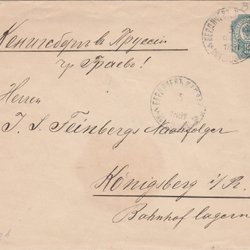 Кенигсбергъ в Пруссіи
чр Граево!
Herren
J. S. Feinbergs Nachfolger
Königsberg i/P.
Bahnhof lagern